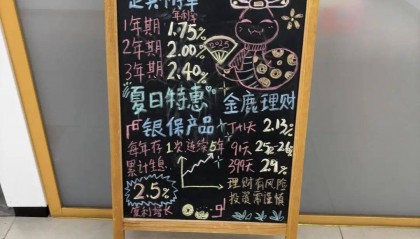 年利率
1年期 1.75%
2年期 2.00%
3年期 2.40%
2025
夏日特惠
银保产品
每年存1次连续5年
累计生息
2.5%
复利增长
金鹿理财
7天 2.13%
91天
399天 2.9%
理财有风险
投资需谨慎